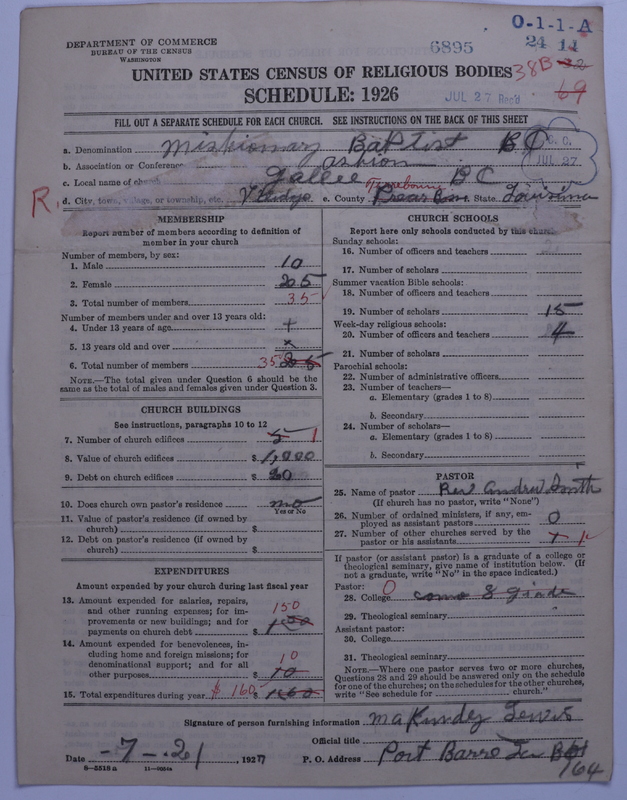 DEPARTMENT OF COMMERCE
BUREAU OF THE CENSUS
WASHINGTON
6895
0-1-1-A
24 14
38B 32
69
UNITED STATES CENSUS OF RELIGIOUS BODIES
SCHEDULE: 1926
JUL 27 Rec'd
FILL OUT A SEPARATE SCHEDULE FOR EACH CHURCH. SEE INSTRUCTIONS ON THE BACK OF THIS SHEET
a. Denomination Missionary Baptist B C
b. Association or Conference
JUL 27
c. Local name of church Gallee B C
R.
d. City, town, village, or township, etc. e. County State
MEMBERSHIP
Report number of members according to definition of
member in your church
Number of members, by sex:
1. Male 10
2. Female 25
3. Total number of members 35
Number of members under and over 13 years old:
4. Under 13 years of age +
5. 13 years old and over x
6. Total number of members 35
NOTE.—The total given under Question 6 should be the
same as the total of males and females given under Question 3.
CHURCH BUILDINGS
See instructions, paragraphs 10 to 12
7. Number of church edifices 5 1
8. Value of church edifices $ 1,000
9. Debt on church edifices $ 20
10. Does church own pastor's residence no
Yes or No
11. Value of pastor's residence (if owned by
church) $
12. Debt on pastor's residence (if owned by
church) $
EXPENDITURES
Amount expended by your church during last fiscal year
13. Amount expended for salaries, repairs,
and other running expenses; for im-
provements or new buildings; and for
payments on church debt $ 150
14. Amount expended for benevolences, in-
cluding home and foreign missions; for
denominational support; and for all
other purposes $ 10 10
15. Total expenditures during year $ 160 $
CHURCH SCHOOLS
Report here only schools conducted by this church
Sunday schools:
16. Number of officers and teachers
17. Number of scholars
Summer vacation Bible schools:
18. Number of officers and teachers
19. Number of scholars 15
Week-day religious schools:
20. Number of officers and teachers 4
21. Number of scholars
Parochial schools:
22. Number of administrative officers
23. Number of teachers—
a. Elementary (grades 1 to 8)
b. Secondary
24. Number of scholars—
a. Elementary (grades 1 to 8)
b. Secondary
PASTOR
25. Name of pastor Rev Andrew Smith
(If church has no pastor, write "None")
26. Number of ordained ministers, if any, em-
ployed as assistant pastors 0
27. Number of other churches served by the
pastor or his assistants
If pastor (or assistant pastor) is a graduate of a college or
theological seminary, give name of institution below. (If
not a graduate, write "No" in the space indicated.)
Pastor:
28. College 0 8 grade
29. Theological seminary
Assistant pastor:
30. College
31. Theological seminary
NOTE.—Where one pastor serves two or more churches,
Questions 28 and 29 should be answered only on the schedule
for one of the churches; on the schedules for the other churches,
write "See schedule for church."
Signature of person furnishing information Lewis
Official title
Date -7-21, 1927 P. O. Address Port Barre La
8-5519a
164